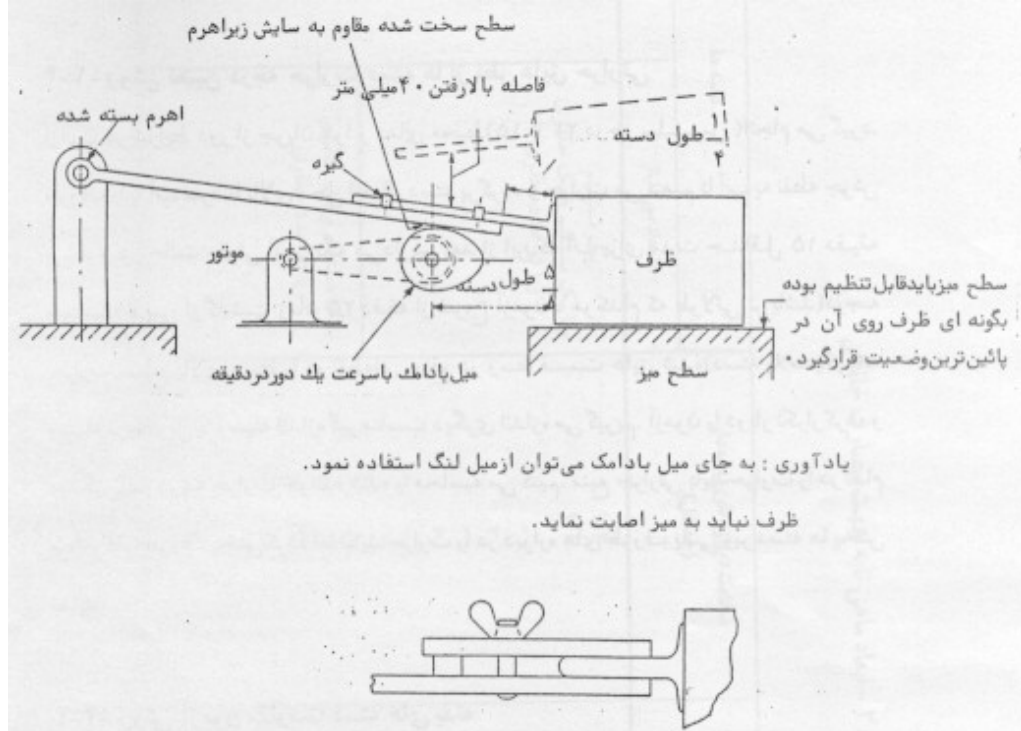 سطح سخت شده مقاوم به سایش زیراهرم
فاصله بالارفتن ۴۰میلی متر
اهرم بسته شده
گیره
طول دسته ۱/۴
موتور
ظرف
طول دسته
۵
سطح میزبایدقابل تنظیم بوده
بگونه ای ظرف روی آن در
پائین‌ترین‌وضعیت قرارگیرد.
میل‌بادامك باسرعت یك دوردردقیقه
سطح میز
یادآوری : به جای میل بادامک می‌توان ازمیل لنگ استفاده نمود.
ظرف نباید به میز اصابت نماید.